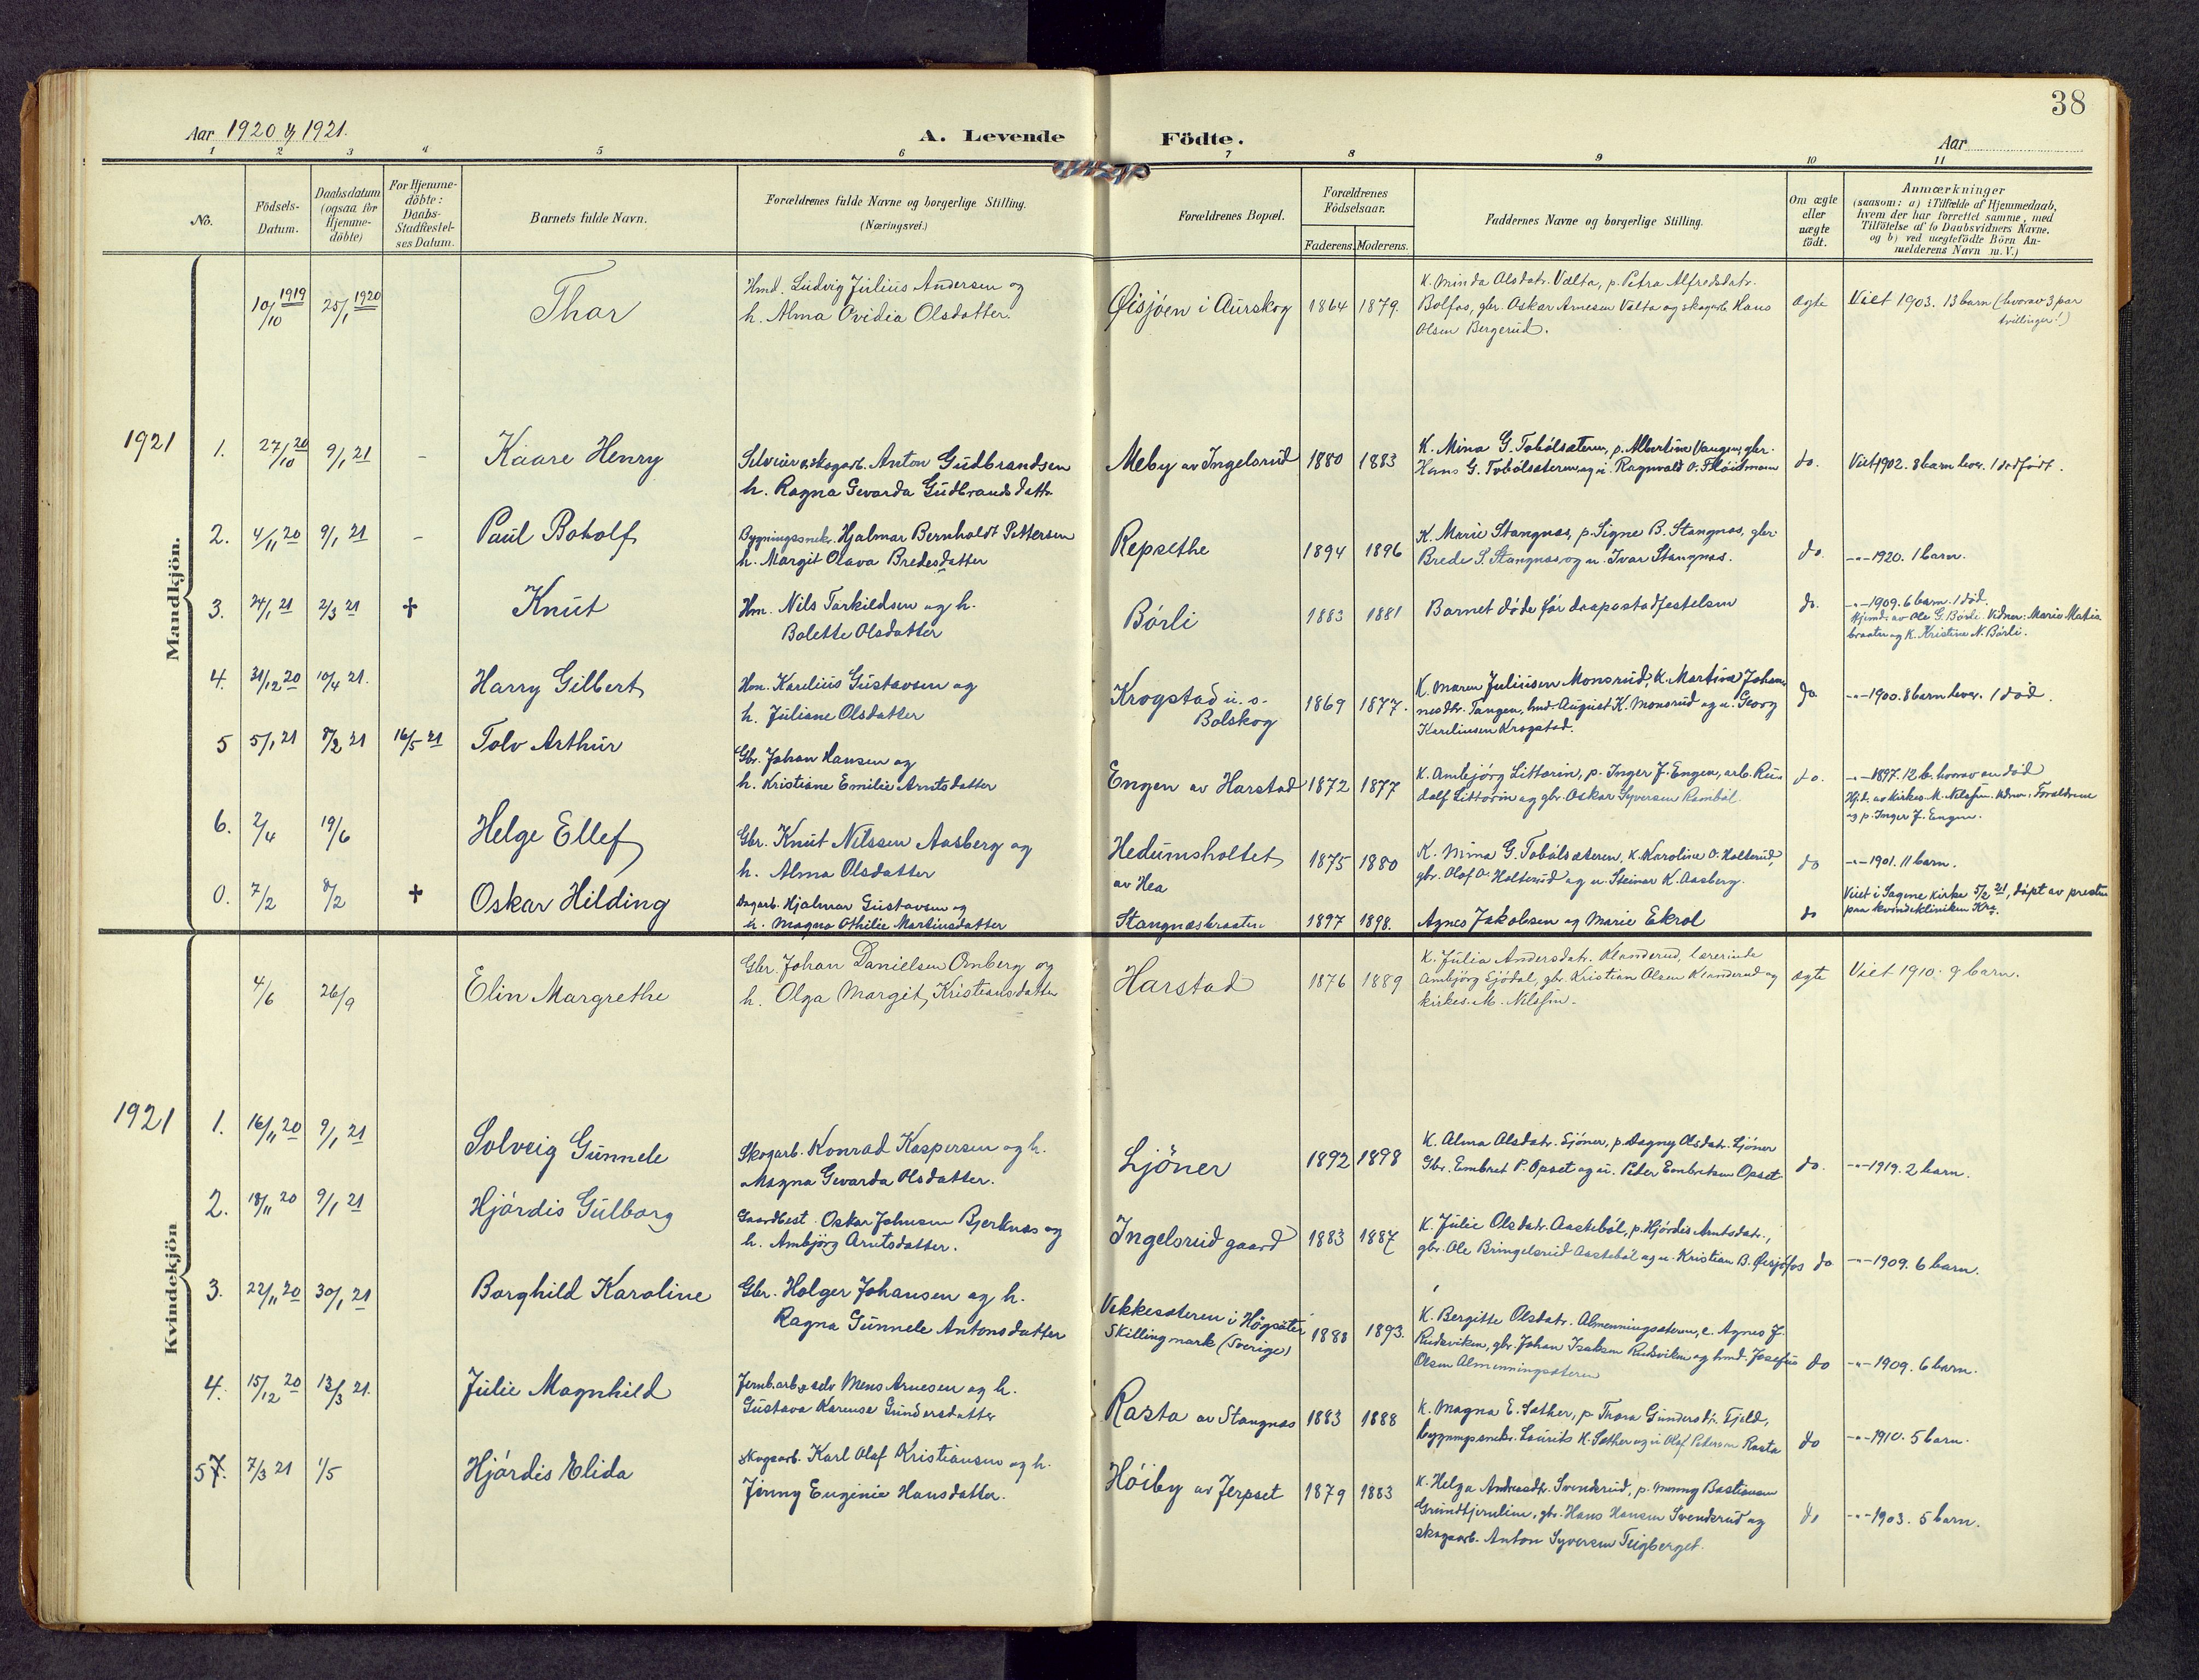 38
Aar 1920 & 1921.
A. Levende Födte.
Aar
1 2 3 4 5 6 7 8 9 10 11
No.
Födsels-Datum.
Daabsdatum (ogsaa for Hjemme-döbte)
For Hjemme-döbte: Daabs-Stadfestel-ses Datum.
Barnets fulde Navn.
Forældrenes fulde Navne og borgerlige Stilling.
(Næringsvei.)
Forældrenes Bopæl.
Forældrenes Födselsaar.
Faderens. Moderens.
Faddernes Navne og borgerlige Stilling.
Om ægte eller uægte födt.
Anmærkninger
(saasom: a) i Tilfælde af Hjemmedaab,
hvem der har forrettet samme, med
Tilföielse af to Daabsvidners Navne.
og b) ved uægtefödte Börn An-
melderens Navn m. V.)
Mandkjön.
10/10 1919 25/1 1920 Thor
Hmd. Ludvig Julius Andersen og
h. Alma Ovidia Olsdatter.
Øisjøen i Aurskog 1864 1879.
K. Minda Olsdatr. Valta, p. Petra Alfredsdatr.
Bolfos, gbr. Oskar Arnesen Valta og skogarb. Hans
Olsen Bergerud.
ægte
Viet 1903. 13 barn (hvorav 3 par
tvillinger!)
1921 1. 27/10 20 9/1 21 - Kaare Henry
Selveier & skogarb. Anton Gudbrandsen
h. Ragna Gevarda Gudbrandsdattr.
Meby av Ingelsrud 1880 1883
K. Mina G. Tobölsæteren, p. Albertine Vangen, gbr.
Hans G. Tobölsæteren og u. Ragnvald O. Flöidmoen
do.
Viet 1902. 8 barn lever. 1 dødfødt.
2. 4/11 20 9/1 21 - Paul Botolf
Bygningssnekr. Hjalmar Bernholdt Pettersen
h. Margit Olava Bredesdatter
Repsethe 1894 1896
K. Marie Stangnes, p. Signe B. Stangnes, gbr.
Brede S. Stangnes og u. Ivar Stangnes.
do.
-"- 1920. 1 barn.
3. 24/1 21 2/3 21 + Knut
Hm. Nils Tarkildsen og h.
Bolette Olsdatter
Börli 1883 1881
Barnet døde før daapsstadfestelsen
do.
-"- 1909. 6 barn. 1 død.
Hjemd. av Ole G. Börli. Vidner: Marie Matia
braaten og K. Kristine N. Börli.
4. 31/12 20 10/4 21. Harry Gilbert
Hm. Karelius Gustavsen og
h. Juliane Olsdatter
Krogstad u. s.
Bolskog
1869 1877.
K. Maren Juliusen Monsrud, K. Martina Johan-
nesdtr. Tangen, hmd. August K. Monsrud og u. Georg
Kareliusen Krogstad.
do
-"- 1900. 8 barn lever. 1 død.
5 5/1 21 8/2 21 16/5 21 Tolv Arthur
Gbr. Johan Hansen og
h. Kristiane Emilie Arntsdatter
Engen av Harstad 1872 1877
K. Ambjörg Littorin, p. Inger J. Engen, arb. Ru-
dolf Littorin og gbr. Oskar Syversen Rambøl.
do.
-"- 1897. 12 b. hvorav en død
Hj.d. av kirkes. M. Nilssen. Vidner: Forældrene
og p. Inger J. Engen.
6. 2/4 19/6 Helge Ellef
Gbr. Knut Nilssen Aasberg og
h. Alma Olsdatter
Hedumsholtet
av Hea
1875 1880
K. Mina G. Tobölsæteren, K. Karoline O. Holterud,
gbr. Olof O. Holterud og u. Steinar K. Aasberg.
do
-"- 1901. 11 barn.
0. 7/2 8/2 + Oskar Hilding
Dagarb. Hjalmar Gustavsen og
h. Magna Othilie Martinsdatter
Stangnesbraaten 1897 1898.
Agnes Jakobsen og Marie Ekrol
do
Viet i Sagene kirke 5/2 21, døpt av presten
paa kvindekliniken Kra.
Kvindekjön
4/6 26/9 Elin Margrethe
Gbr. Johan Danielsen Omberg og
h. Olga Margit Kristiansdatter
Harstad 1876 1889
K. Julia Andersdatr. Klanderud, lærerinde
Ambjörg Sjödal, gbr. Kristian Olsen Klanderud og
kirkes. M. Nilssen.
ægte
Viet 1910. 9 barn.
1921 1. 16/11 20 9/1 21 Solveig Gunnele
Skogarb. Konrad Kaspersen og h.
Magna Gevarda Olsdatter.
Ljöner 1892 1898
K. Alma Olsdatr. Ljöner, p. Dagny Olsdatr. Ljöner
Gbr. Embret P. Opset og u. Peder Embretsen Opset
do.
-"- 1919. 2 barn.
2. 18/11 20 9/1 21 Hjördis Gulborg
Gaardbest. Oskar Johnsen Bjerknes og
h. Ambjörg Arntsdatter.
Ingelsrud gaard 1883 1887
K. Julie Olsdatr. Aasteböl, p. Hjördis Arntsdatr.,
gbr. Ole Bringelsrud Aasteböl og u. Kristian B. Øisjøfos
do
-"- 1909. 6 barn.
3. 22/11 20 30/1 21 Borghild Karoline
Gbr. Holger Johansen og h.
Ragna Gunnele Antonsdatter
Vekkesæteren i Högsäter
Skillingmark (Sverige)
1888 1893.
K. Bergitte Olsdatr. Almenningsæteren, e. Agnes J.
Rudsviken, gbr. Johan Isaksen Rudsviken og hmd. Josefus
Olsen Almenningsæteren
do
-"- 1909. 6 barn.
4. 15/12 20 13/3 21. Julie Magnhild
Jernb.arb. & selv. Mens Arnesen og h.
Gustava Karense Gundersdatter
Rasta av Stangnes 1883 1888
K. Magna E. Sæther, p. Thora Gundersdtr. Fjeld,
bygningssnekr. Laurits K. Sæther og u. Olaf Petersen Rasta
do
-"- 1910. 5 barn.
57. 7/3 21 1/5 Hjördis Elida
Skogsarb. Karl Olaf Kristiansen og h.
Jenny Euginie Hansdatter.
Höiby av Jerpset 1879 1883
K. Helga Andreasdtr. Svenderud, p. Bastiansen
, gbr. Hans Hansen Svenderud og
skogsarb. Anton Syversen Teigberget.
do
-"- 1903. 5 barn.